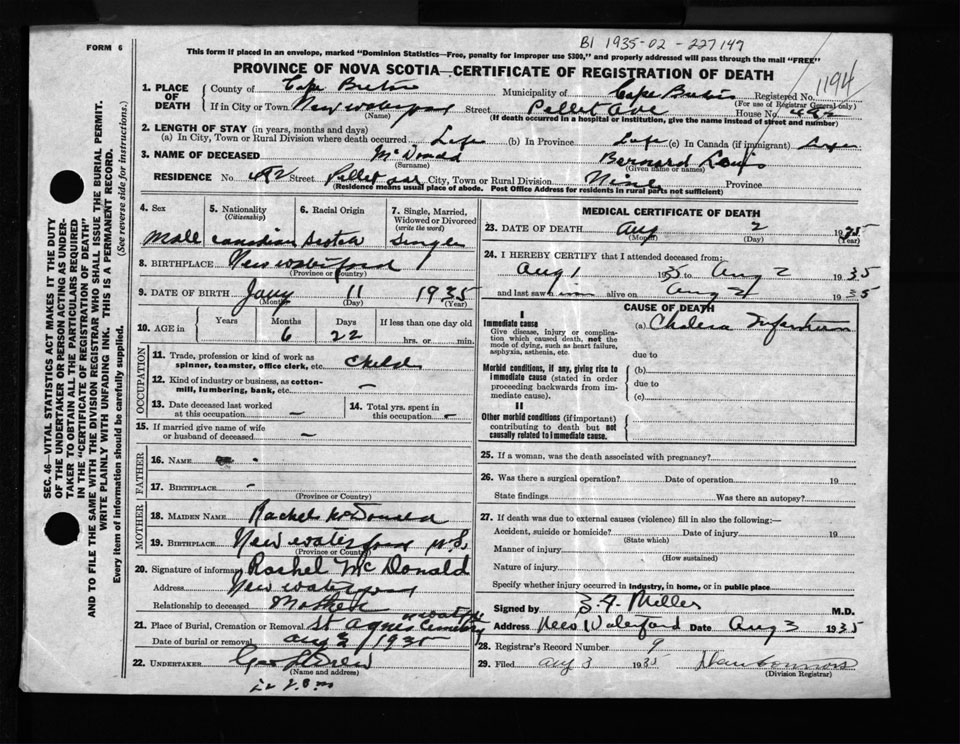 FORM 6
B1 1935-02-227147
This form if placed in an envelope, marked "Dominion Statistics—Free, penalty for improper use $300," and properly addressed will pass through the mail "FREE"
PROVINCE OF NOVA SCOTIA—CERTIFICATE OF REGISTRATION OF DEATH
1194
1. PLACE OF DEATH
County of Cape Breton Municipality of Cape Breton Registered No.
(For use of Registrar General only)
If in City or Town New Waterford Street Pellet Ave House No.
(Name) (If death occurred in a hospital or institution, give the name instead of street and number)
2. LENGTH OF STAY (in years, months and days)
(a) In City, Town or Rural Division where death occurred Life (b) In Province Life (c) In Canada (if immigrant)
3. NAME OF DECEASED McDonald Bernard Louis
(Surname) (Given name or names)
RESIDENCE No. Street Pellet City, Town or Rural Division Province
(Residence means usual place of abode. Post Office Address for residents in rural parts not sufficient)
4. Sex
Male
5. Nationality
(Citizenship)
Canadian
6. Racial Origin
Scotch
7. Single, Married, Widowed or Divorced
(write the word)
Single
8. BIRTHPLACE New Waterford
(Province or country)
9. DATE OF BIRTH Jany 11 1935
(Month) (Day) (Year)
10. AGE in Years Months Days If less than one day old
6 22 hrs. or min.
OCCUPATION
11. Trade, profession or kind of work as
spinner, teamster, office clerk, etc. Child
12. Kind of industry or business, as cotton-
mill, lumbering, bank, etc. –
13. Date deceased last worked
at this occupation. –
14. Total yrs. spent in
this occupation –
15. If married give name of wife
or husband of deceased –
FATHER
16. NAME
17. BIRTHPLACE -
(Province or Country)
MOTHER
18. MAIDEN NAME Rachel McDonald
19. BIRTHPLACE New Waterford N.S.
(Province or Country)
20. Signature of informant Rachel McDonald
Address New Waterford
Relationship to deceased Mother
21. Place of Burial, Cremation or Removal St Agnes Cemetery
Date of burial or removal Aug 3 1935
22. UNDERTAKER
(Name and address)
MEDICAL CERTIFICATE OF DEATH
23. DATE OF DEATH Aug 2 1935
(Month) (Day) (Year)
24. I HEREBY CERTIFY that I attended deceased from:
Aug 1 1935 to Aug 2 1935
and last saw him alive on Aug 2 1935
CAUSE OF DEATH
I
Immediate cause
Give disease, injury or complication which caused death, not the mode of dying, such as heart failure, asphyxia, asthenia, etc.
(a) Cholera Infantum
due to
Morbid conditions, if any, giving rise to immediate cause (stated in order proceeding backwards from immediate cause).
(b)
due to
(c)
II
Other morbid conditions (if important) contributing to death but not causally related to immediate cause.
25. If a woman, was the death associated with pregnancy?
26. Was there a surgical operation? Date of operation 19
State findings Was there an autopsy?
27. If death was due to external causes (violence) fill in also the following:—
Accident, suicide or homicide? Date of injury 19
(State which)
Manner of injury
(How sustained)
Nature of injury
Specify whether injury occurred in Industry, in home, or in public place
Signed by Miller M.D.
Address New Waterford Date Aug 3 1935
28. Registrar's Record Number 9
29. Filed Aug 3 1935
(Division Registrar)
SEC. 46—VITAL STATISTICS ACT MAKES IT THE DUTY
OF THE UNDERTAKER OR PERSON ACTING AS UNDER-
TAKER TO OBTAIN ALL THE PARTICULARS REQUIRED
IN THE "CERTIFICATE OF REGISTRATION OF DEATH"
AND TO FILE THE SAME WITH THE DIVISION REGISTRAR WHO SHALL ISSUE THE BURIAL PERMIT.
WRITE PLAINLY WITH UNFADING INK. THIS IS A PERMANENT RECORD.
Every item of information should be carefully supplied. (See reverse side for instructions.)